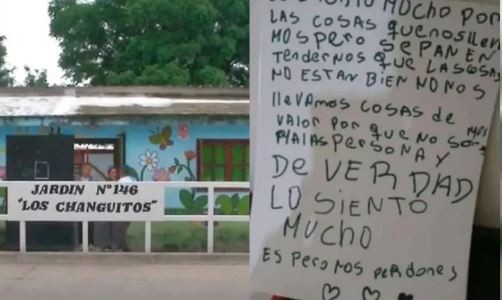 JARDIN Nº146
"LOS CHANGUITOS"
MUCHO POR
LAS COSAS QUE NOS LLEVA
MOS PERO SEPAN EN
TENDERNOS QUE LAS COSA
NO ESTAN BIEN NO NOS
llEVAMOS COSAS DE MAS
VALOR POR QUE NO SOMOS
MALAS PERSONA Y
DE VERDAD
LO SIENTO
MUCHO
ESPERO NOS PERDONES